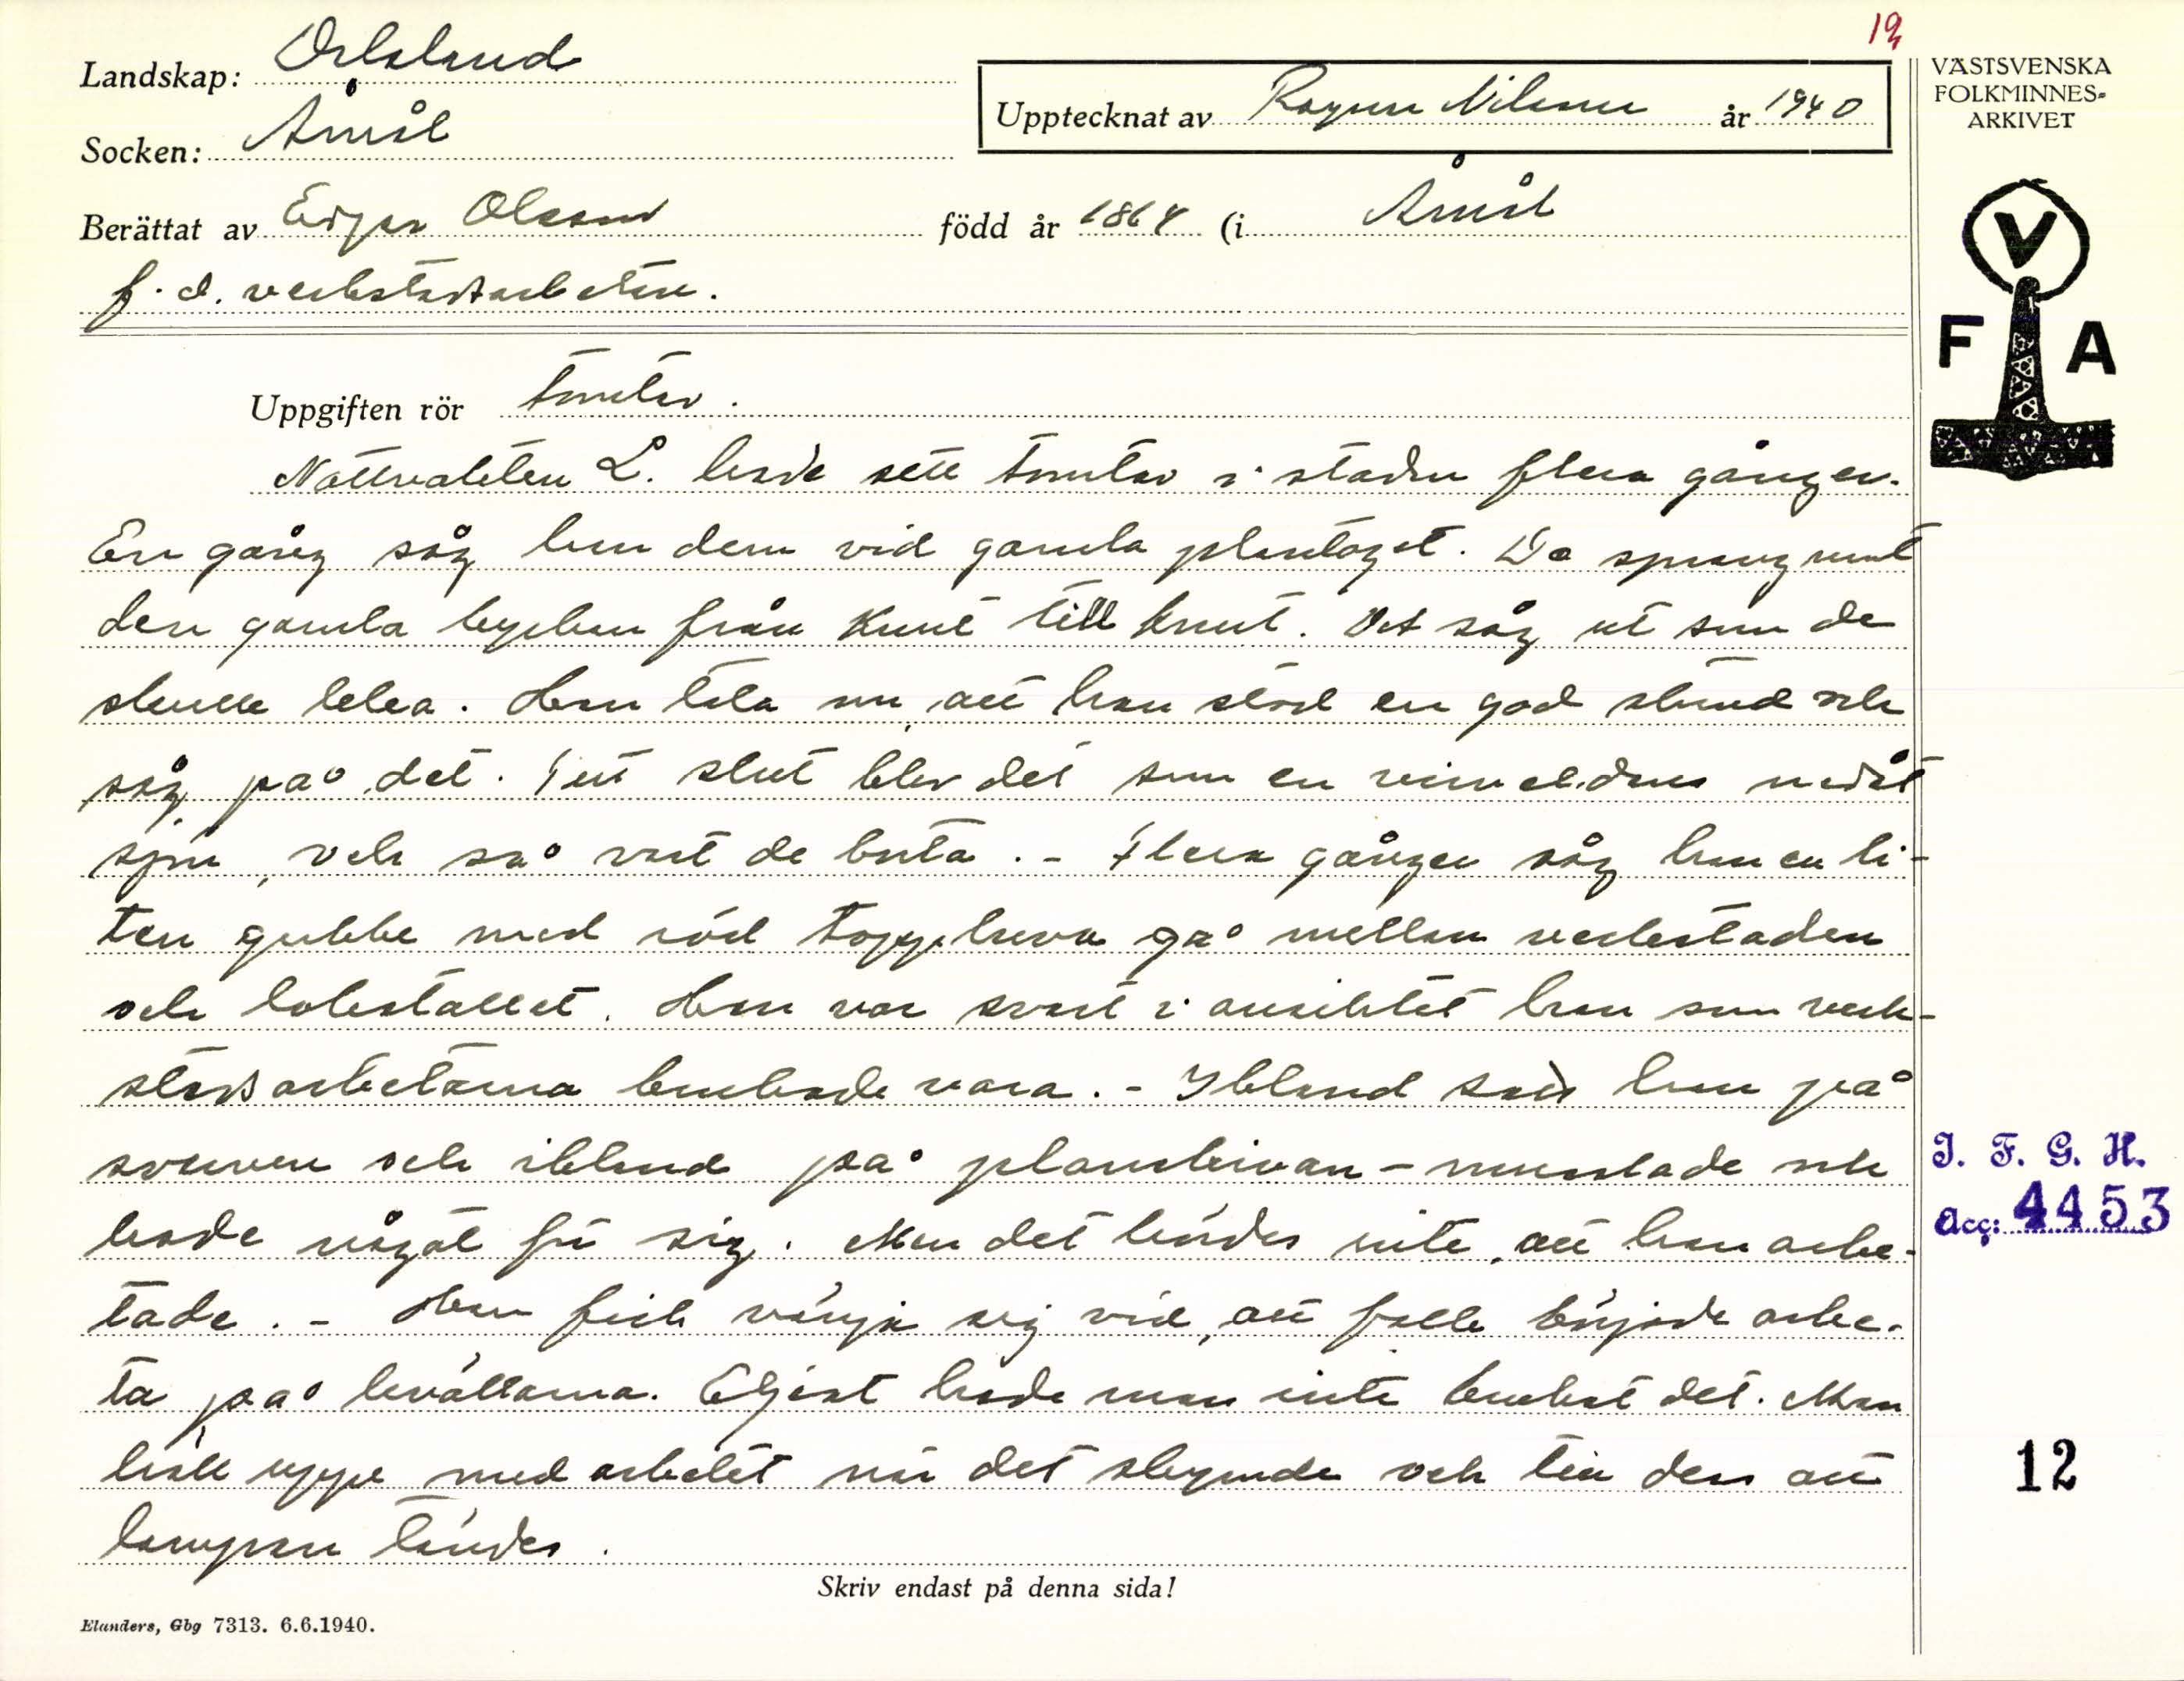 19
Landskap: Dalsland
Socken: Åmål
Upptecknat av Ragnar Nilsson år 1940
VÄSTSVENSKA
FOLKMINNES-
ARKIVET
Berättat av Edgar Olsson född år 1864 (i Åmål
f.d. verkstadsarbetare.
V
F A
Uppgiften rör Tomtar.
Nattvakten L. hade sett tomtar i staden flera gånger.
En gång såg han dem vid gamla plantaget. De sprang runt
den gamla logen från knut till knut. Det såg ut som de
skulle leka. Han tala om, att han stod en god stund och
såg på det. Till slut blev det som en virvel nedåt
sjön, och så vart de borta. - Flera gånger såg han en li-
ten gubbe med röd toppluva gå mellan verkstaden
och lokstallet. Han var svart i ansiktet han som verk-
stadsarbetarna brukade vara. - Ibland satt han på
svarven och ibland på planskivan - mumlade och
hade något för sig. Men det hördes inte, att han arbe-
tade. - Han fick vänja sig vid, att folk började arbe-
ta på kvällarna. Eljest hade man inte brukat det. Man
höll uppe med arbetet när det skymde och till dess att
lampan tändes.
I. F. G. H.
Acc: 4453
12
Skriv endast på denna sida!
Elanders, Gbg 7313. 6.6.1940.